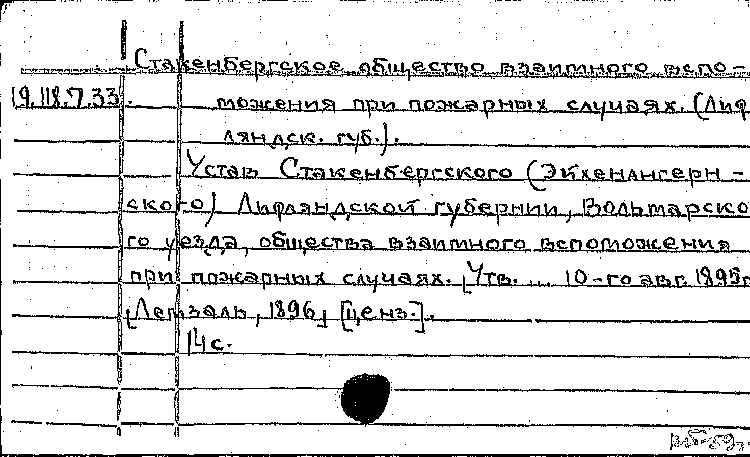 Стакенбергское общество взаимного вспо-
19.118.7.33. можения при пожарных случаях. (Лиф
ляндск. губ.).
Устав Стакенбергского (Эйхенангерн-
ского) Лифляндской губернии, Вольмарско
го уезда, общества взаимного вспоможения
при пожарных случаях. [Утв. ... 10-го авг. 1895г
[Лемзаль, 1896] [ценз.].
14 с.